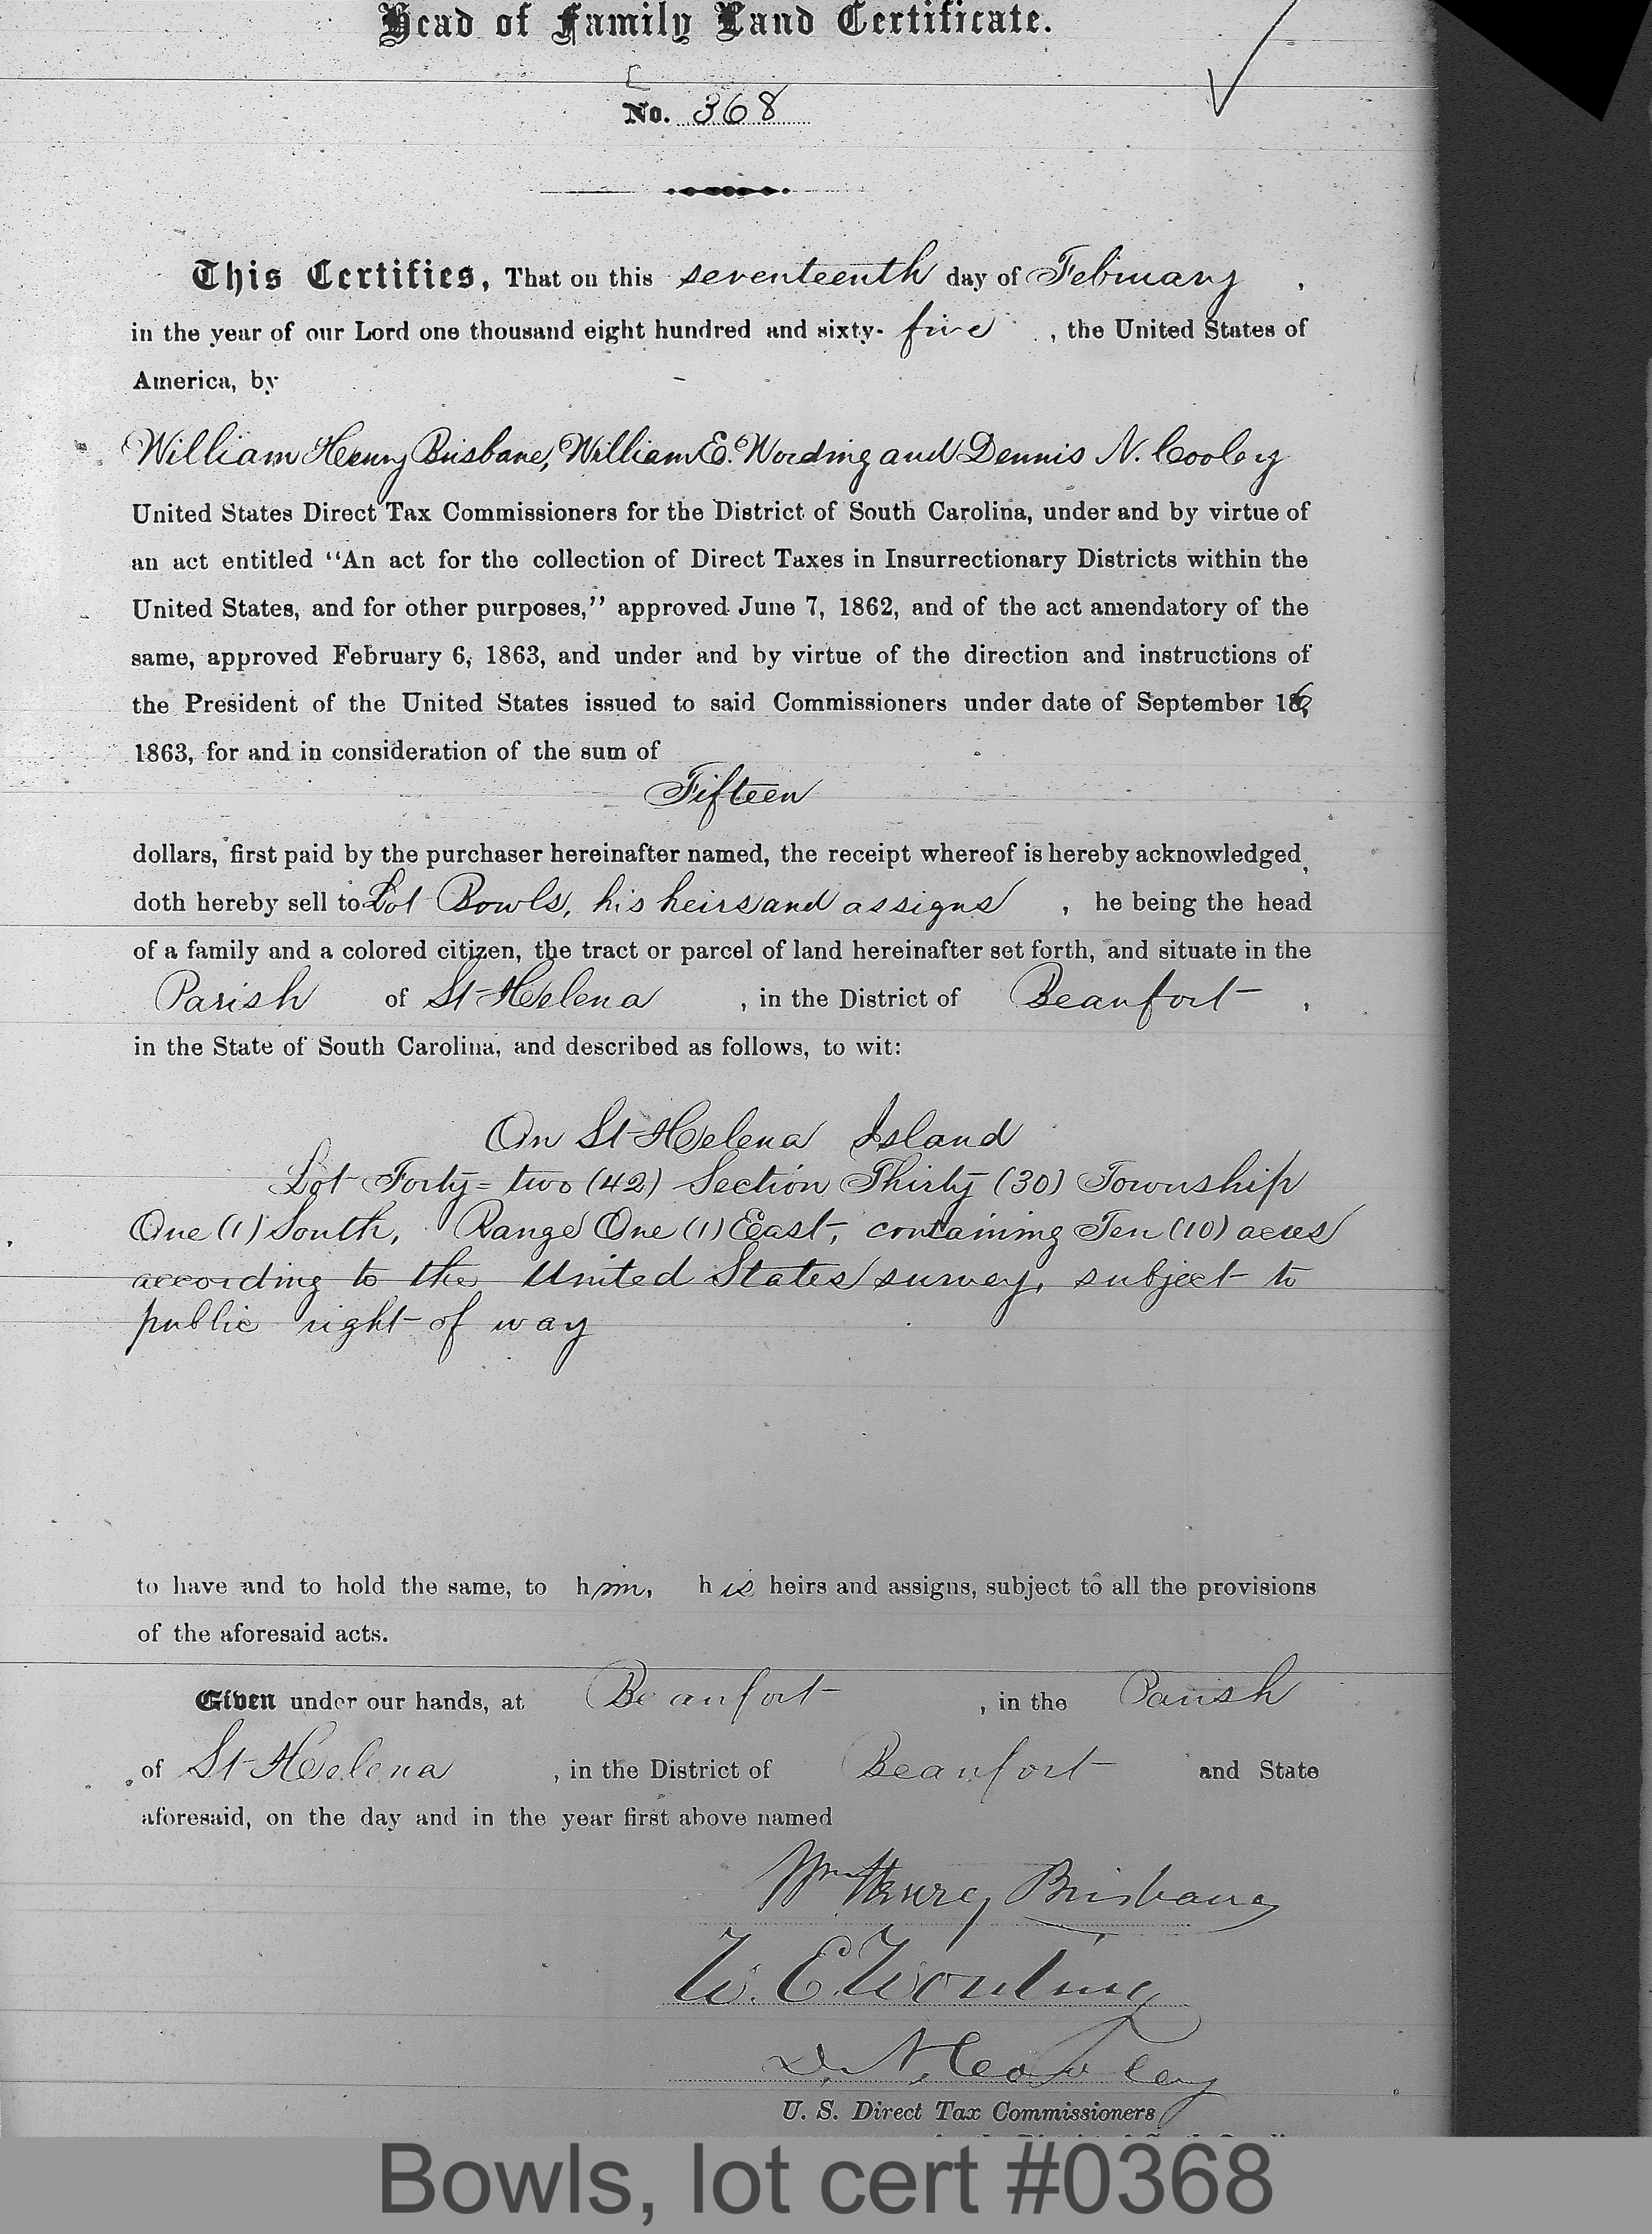 Head of Family Land Certificate.
No. 368
This Certifies, That on this seventeenth day of February ,
in the year of our Lord one thousand eight hundred and sixty- five , the United States of
America, by
William Henry Brisbane, William E. Wording and Dennis N. Cooley
United States Direct Tax Commissioners for the District of South Carolina, under and by virtue of
an act entitled “An act for the collection of Direct Taxes in Insurrectionary Districts within the
United States, and for other purposes,” approved June 7, 1862, and of the act amendatory of the
same, approved February 6, 1863, and under and by virtue of the direction and instructions of
the President of the United States issued to said Commissioners under date of September 16,
1863, for and in consideration of the sum of
Fifteen
dollars, first paid by the purchaser hereinafter named, the receipt whereof is hereby acknowledged,
doth hereby sell to Lot Bowls, his heirs and assigns , he being the head
of a family and a colored citizen, the tract or parcel of land hereinafter set forth, and situate in the
Parish of St Helena , in the District of Beaufort ,
in the State of South Carolina, and described as follows, to wit:
On St Helena Island
Lot Forty=two (42) Section Thirty (30) Township
One (1) South, Range One (1) East, containing Ten (10) acres
according to the United States survey, subject to
public right of way
to have and to hold the same, to him, his heirs and assigns, subject to all the provisions
of the aforesaid acts.
Given under our hands, at Beaufort , in the Parish
of St Helena , in the District of Beaufort and State
aforesaid, on the day and in the year first above named
Wm Henry Brisbane
W. E. Wording
D. N. Cooley
U. S. Direct Tax Commissioners
Bowls, lot cert #0368